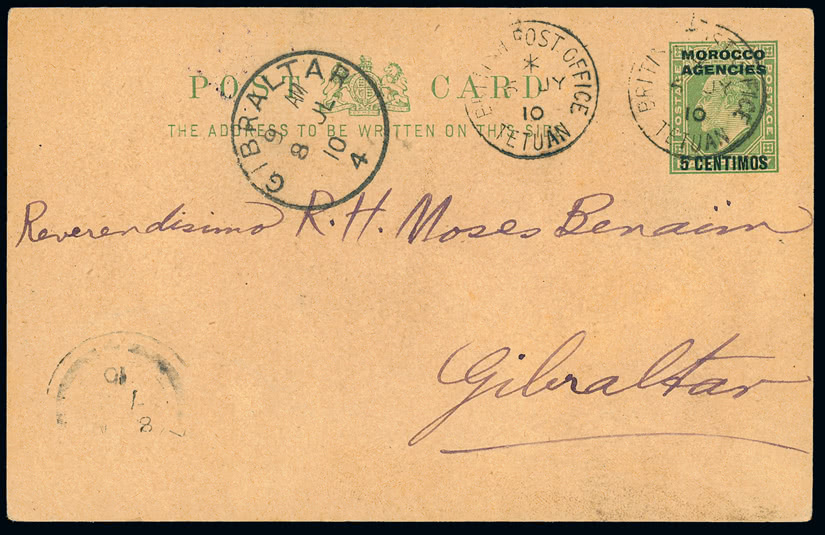 POST CARD
THE ADDRESS TO BE WRITTEN ON THIS SIDE
GIBRALTAR
9 AM
8 JL
10
4
BRITISH POST OFFICE
*
JY
10
TETUAN
MOROCCO
AGENCIES
POSTAGE
POSTAGE
5 CENTIMOS
BRITISH POST OFFICE
JY
10
TETUAN
Reverendisimo R. H. Moses Benaïm
Gibraltar
10
8